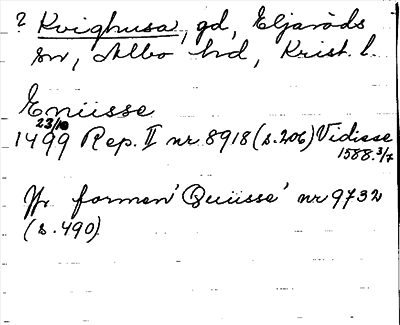 ? Kvighusa, gd, Eljaröds
sn, Albo hd, Krist. l.
Enüsse
23/10
1499 Rep. II nr 8918 (s. 206) Vidisse
1588. 3/7
Jfr formen 'Quüsse' nr 9732
(s. 490)